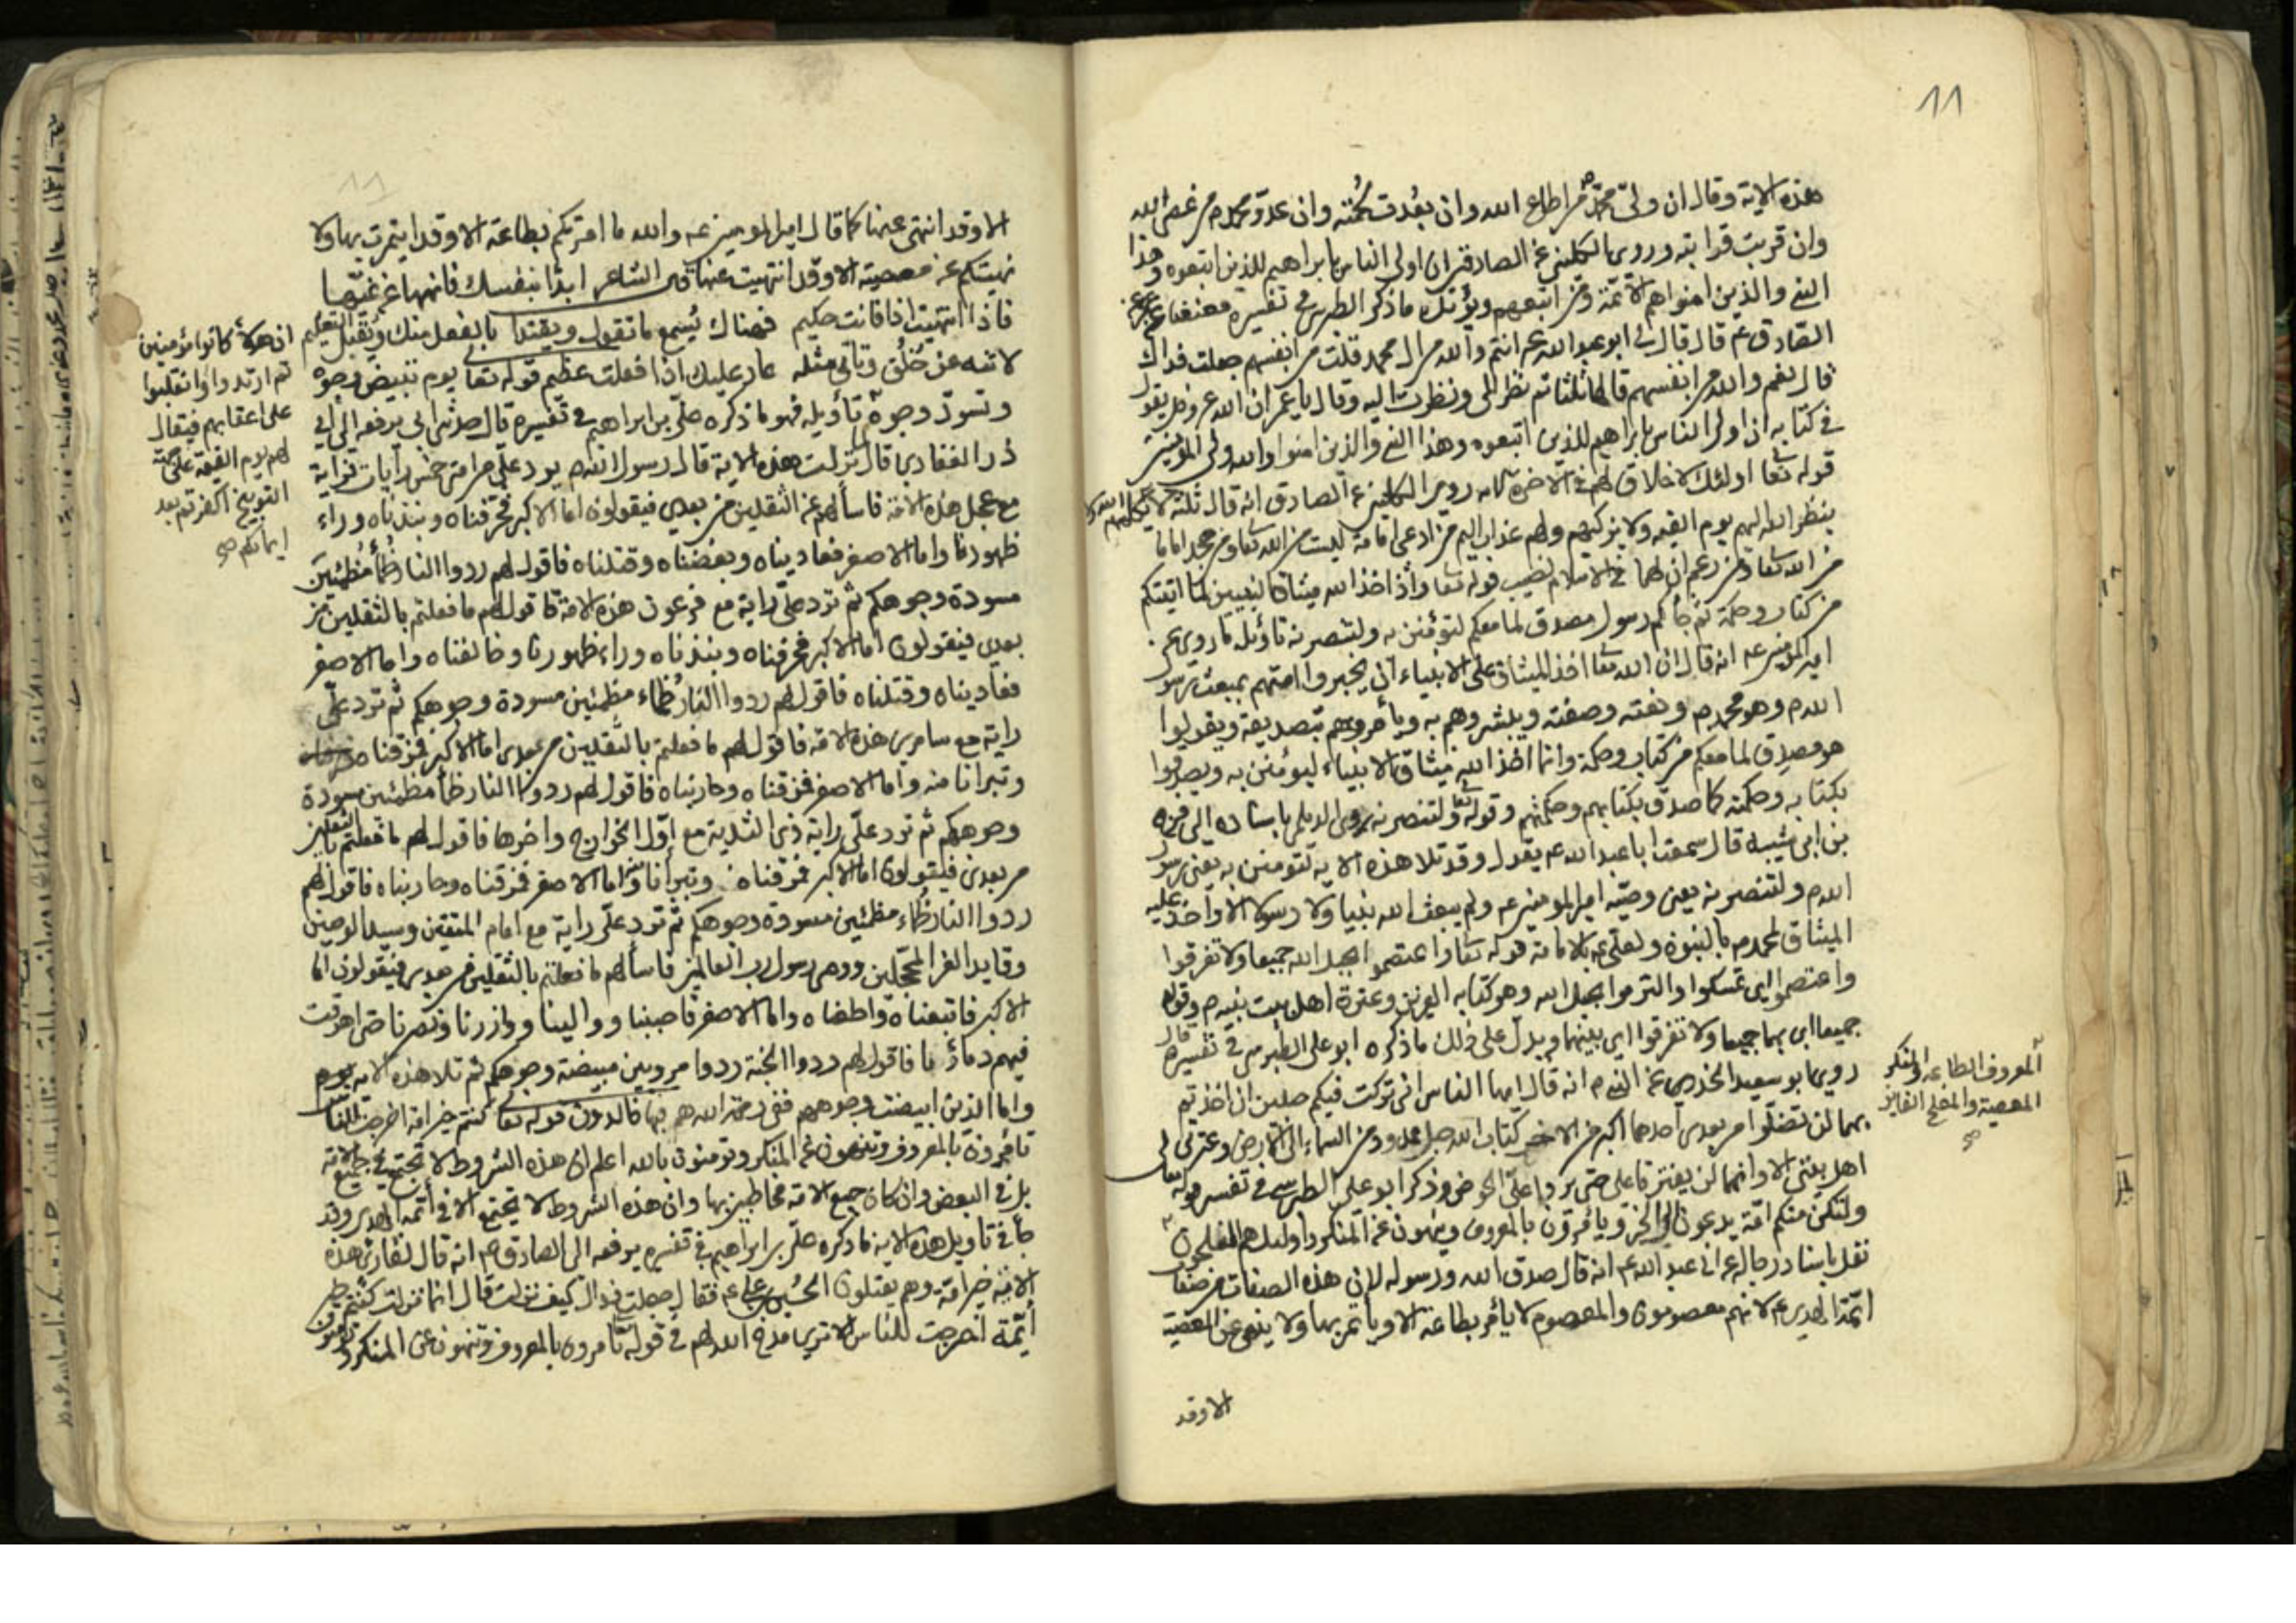 ١١
هذه الاية وقال ان ولىّ محمّد من اطاع الله وان بعُدت لحُمته وان عدوّ محمد م من عصى الله
وان قربت قرابته وروى الكلينى عن الصادقين ان اولى الناس بابراهيم للذين اتبعوه وهذا
النبى والذين امنوا هم الائمّة ومن اتبعهم ويؤيّد ماذكر الطبرسى فى تفسيره معنعنا عن عمر
الصّادق ع قال قال لى ابو عبد الله عم انتم والله من ال محمد فقلت من انفسهم جعلت فداك
قال نعم والله من انفسهم قالها ثلثا ثم نظر الىّ ونظرت اليه وقال يا عمر ان الله عز وجل يقول
فى كتابه ان اولى الناس بابراهيم للذين اتبعوه وهذا النبى والذين امنوا والله ولى المؤمنين
قوله تعا اولئك لا خلاق لهم فى الاخرة روى الكلينى عن الصادق انه قال ثلثة لا يكلمهم الله ولا
ينظر الله اليهم يوم القيمه ولا يزكيهم ولهم عذاب اليم من ادعى امامة ليست من الله تعا ومن جحد اماما
من الله تعا ومن زعم ان لهما فى الاسلام نصيب قوله تعا واذ اخذ الله ميثاق النبيين لما اتيتكم
من كتاب وحكمة ثم جاءكم رسول مصدق لما معكم لتؤمنن به ولتنصرنه تاويله ما روى عن
امير المؤمنين عم انه قال ان الله تعا اخذ الميثاق على الانبياء ان يخبروا اممهم بمبعث رسول
الله م وهو محمد م ونعته وصفته ويبشروهم به ويأمروهم بتصديقه ويقولوا
هو مصدق لما معكم من كتاب وحكمة وانما اخذ الله ميثاق الانبياء ليؤمنن به ويصدقوا
بكتابه وحكمته كما صدّق بكتابهم وحكمتهم وقوله تعا ولتنصرنه روى الديلمى باسناده الى فرج
بن ابى شيبه قال سمعت ابا عبد الله عم يقول وقد تلا هذه الاية لتومنن به يعنى رسول
الله م ولتنصرنه يعنى وصيّه امير المومنين عم ولم يبعث الله نبيا ولا رسولا الا واخذ عليه
الميثاق لمحمد م بالنبوة ولعلى عم بالامامة قوله تعا واعتصموا بحبل الله جميعا ولا تفرقوا
واعتصموا اى تمسكوا والتزموا بحبل الله وهو كتابه العزيز وعترة اهل بيت نبيه م وقوله
جميعا اى بهما جميعا ولا تفرقوا اى بينهما ويدلّ على ذلك ما ذكره ابو على الطبرسى فى تفسيره قال
روى ابو سعيد الخدرى عن النبى م انه قال ايها الناس انى تركت فيكم حبلين ان اخذتم
بهما لن تضلّوا من بعدى احدهما اكبر من الاخر كتاب الله حبل ممدود من السماء الى الارض وعترتى
اهل بيتى الا وانهما لن يفترقا حتى يردا علىّ الحوض وذكر ابو على الطبرسى فى تفسير قوله تعا
ولتكن منكم امّة يدعون الى الخير ويأمرون بالمعروف وينهون عن المنكر واولئك هم المفلحون
نقل باسناد رجاله عن ابى عبد الله عم انه قال صدق الله ورسوله لان هذه الصفات من صفات
ائمّة الهدى عم لانهم معصومون والمعصوم لا يأمر بطاعة الا ويأتمر بها ولا ينهى عن المعصية
الا وقد
المعروف الطاعه والمنكر
المعصية والمفلح الفايز
صح
الا وقد انتهى عنها كما قال امير المومنين عم والله ما امرتكم بطاعة الا وقد ايتمرت بها ولا
نهيتكم عن معصية الا وقد انتهيت عنها قال الشاعر ابدأ بنفسك فانهها عن غيّها
فاذا انتهيت اذا فانت حكيم فهناك يُسمع ما تقول ويقتدا بالفعل منك ويُقبل التعليم
لا تنه عن خُلُق وتاتى مثله عار عليك اذا فعلت عظيم قوله تعا يوم تبيض وجوه
وتسودّ وجوه تأويله فهو ما ذكره علىّ بن ابراهيم فى تفسيره قال حدثنى ابى يرفعه الى ابى
ذر الغفارى قال لما نزلت هذه الاية قال رسول الله م يرد علىّ من امتى خمس رايات فراية
مع عجل هذه الامّة فاسألهم عن الثقلين من بعدى فيقولون اما الاكبر فحرّقناه ونبذناه وراء
ظهورنا واما الاصغر فعاديناه وبغضناه وقتلناه فاقول لهم ردوا النار ظمأ مُظمئين
مسودة وجوهكم ثم ترد علىّ راية مع فرعون هذه الامة فاقول لهم ما فعلتم بالثقلين من
بعدى فيقولون اما الاكبر فحرقناه ونبذناه وراء ظهورنا وخالفناه واما الاصغر
فعاديناه وقتلناه فاقول لهم ردوا النار ظماء مظمئين مسودة وجوهكم ثم ترد علىّ
راية مع سامرى هذه الامّة فاقول لهم ما فعلتم بالثقلين من بعدى اما الاكبر فمزقناه
وتبرانا منه واما الاصغر فمزقناه وحاربناه فاقول لهم ردوا النار ظمأ مظمئين مسودة
وجوهكم ثم ترد علىّ راية ذى الثدية مع اوّل الخوارج واخرها فاقول لهم ما فعلتم بالثقلين
من بعدى فيقولون اما الاكبر فمزقناه وتبرأنا منه واما الاصغر فمزقناه وحاربناه فاقول لهم
ردوا النار ظماء مظمئين مسودة وجوهكم ثم ترد علىّ راية مع امام المتقين وسيد الوصيين
وقايد الغر المحجّلين ووصى رسول رب العالمين فاسألهم ما فعلتم بالثقلين من بعدى فيقولون اما
الاكبر فاتبعناه واطعناه واما الاصغر فاحببنا ووالينا ووازرنا ونصرنا حتى اهرقت
فيهم دماؤنا فاقول لهم ردوا الجنة ردوا مرويين مبيضة وجوهكم ثم تلا هذه الاية يوم
واما الذين ابيضت وجوههم ففى رحمة الله هم فيها خالدون قوله تعا كنتم خير امة اخرجت للناس
تأمرون بالمعروف وتنهون عن المنكر وتومنون بالله اعلم ان هذه الشروط لا تجتمع فى جميع الامة
بل فى البعض وان كان جميع الامة مخاطبين بها وان هذه الشروط لا تجتمع الا فى ائمّة الهدى وقد
جأ فى تاويل هذه الاية ما ذكره علىّ بن ابراهيم فى تفسيره يرفعه الى الصادق عم انه قال لقارئ هذه
الاية خير امة وهم يقتلون الحُسين بن على عم فقال جعلت فداك كيف نزلت قال انما نزلت كنتم خير
أئمّة اخرجت للناس الا ترى مدح الله لهم فى قوله تأمرون بالمعروف وتنهون عن المنكر وتومنون
ان هولاء كانوا مؤمنين
ثم ارتدوا وانقلبوا
على اعقابهم فيقال
لهم يوم القيمة على جهة
التوبيخ اكفرتم بعد
ايمانكم صح